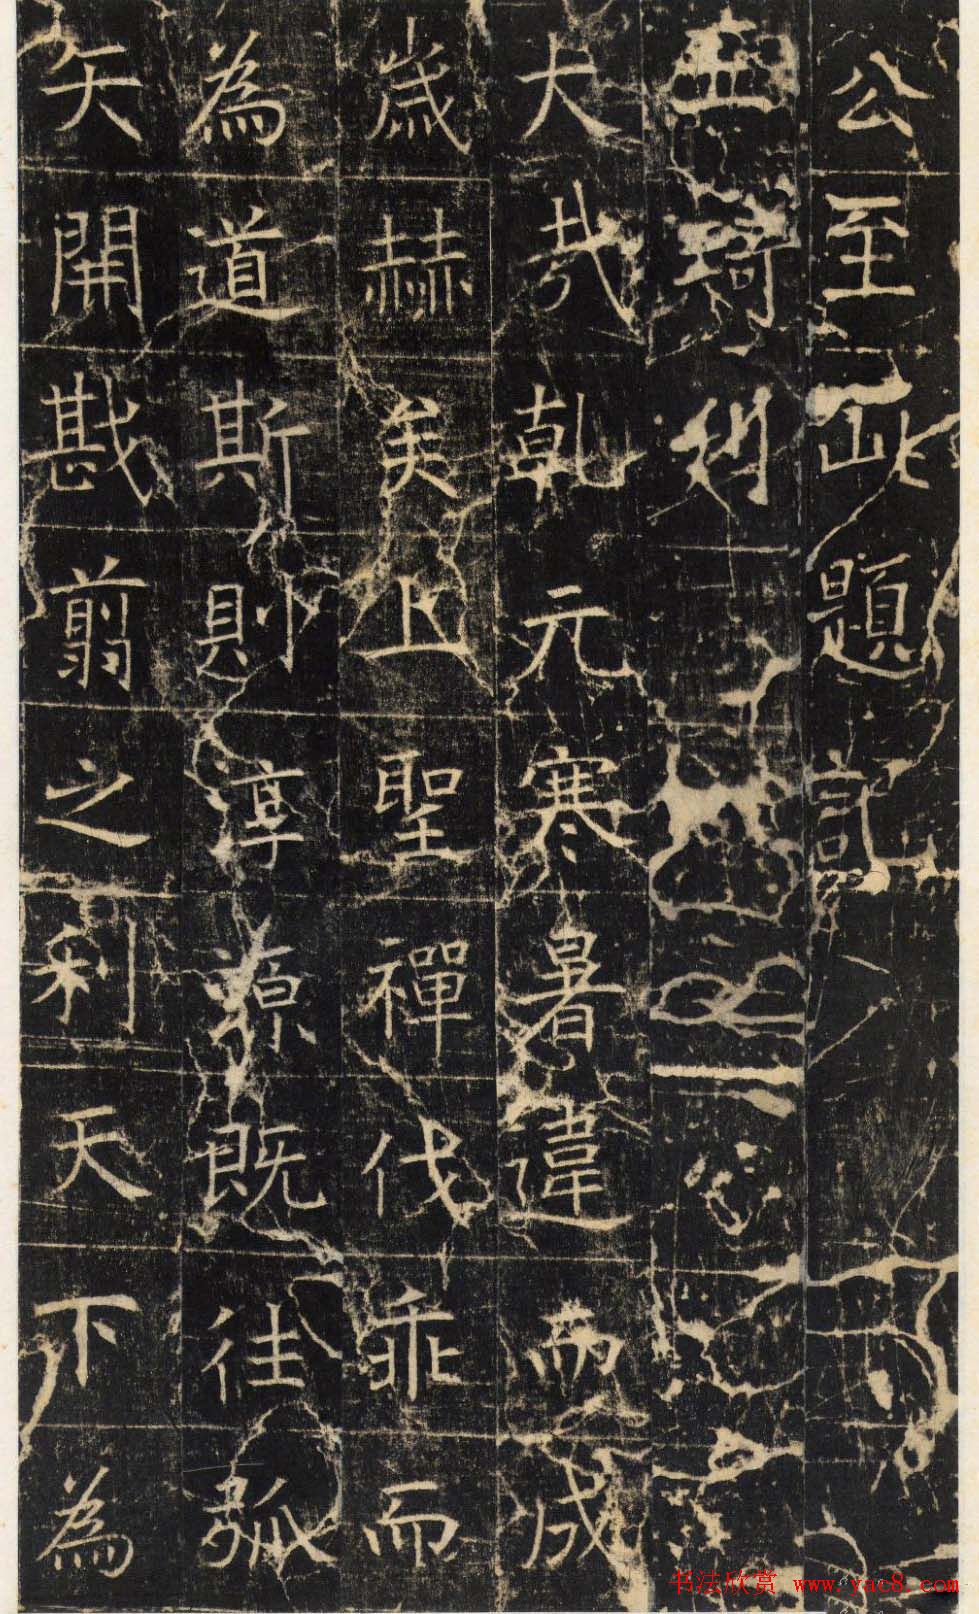 公至此題記
五琦刻
大哉乾元寒暑違而成
歲赫矣上聖禪代乖而
為道斯則淳源既往弧
矢開戡翦之利天下為
书法欣赏 www.yac8.com